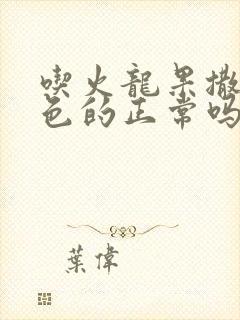 喫火龍果撒
色的正常嗎
葉偉